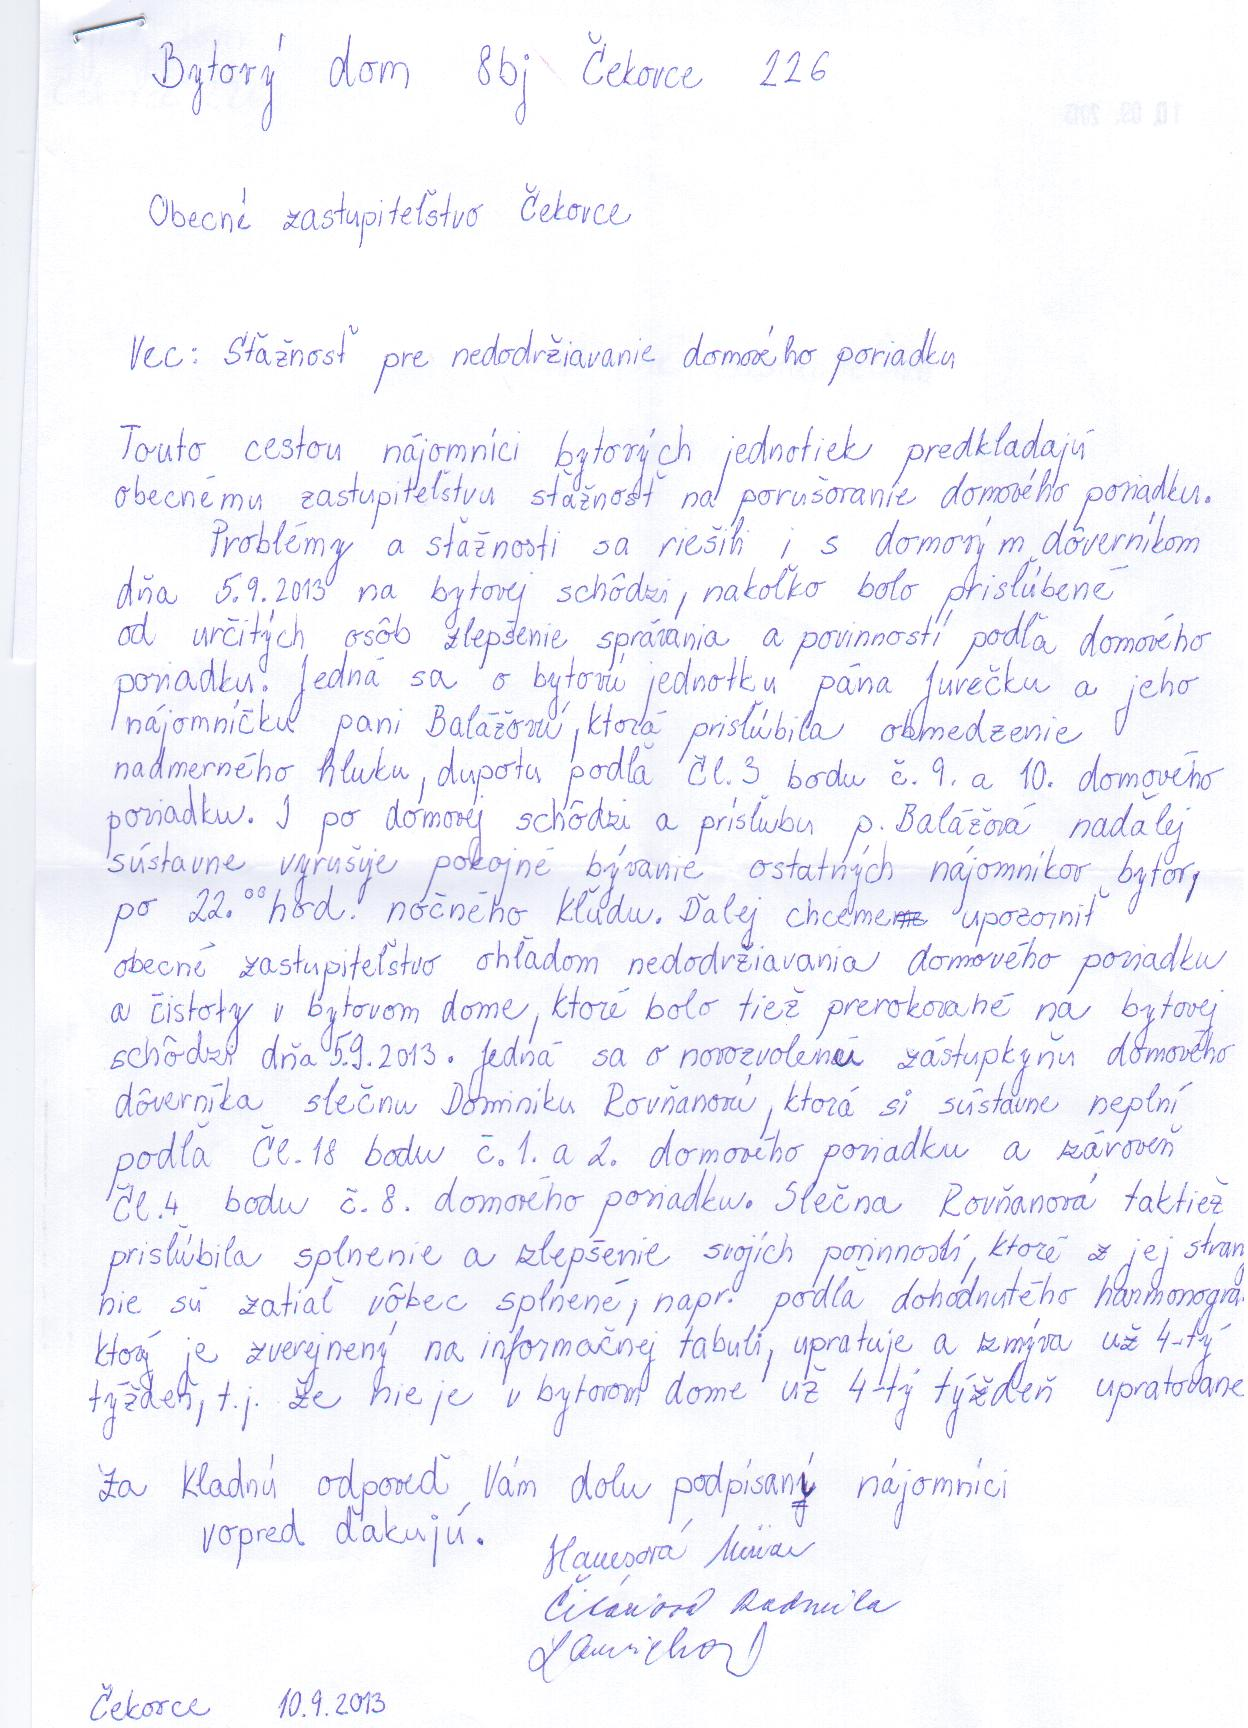 Bytový dom 8bj Čekovce 226
Obecné zastupiteľstvo Čekovce
Vec: Sťažnosť pre nedodržiavanie domového poriadku
Touto cestou nájomníci bytových jednotiek predkladajú
obecnému zastupiteľstvu sťažnosť na porušovanie domového poriadku.
Problémy a sťažnosti sa riešili i s domovým dôverníkom
dňa 5.9.2013 na bytovej schôdzi, nakoľko bolo prisľúbené
od určitých osôb zlepšenie správania a povinností podľa domového
poriadku. Jedná sa o bytovú jednotku pána Jurečku a jeho
nájomníčku pani Balážovú, ktorá prisľúbila obmedzenie
nadmerného hluku, dupotu podľa Čl. 3 bodu č. 9. a 10. domového
poriadku. I po domovej schôdzi a prísľubu p. Balážová naďalej
sústavne vyrušuje pokojné bývanie ostatných nájomníkov bytov,
po 22.⁰⁰ hod. nočného kľudu. Ďalej chceme upozorniť
obecné zastupiteľstvo ohľadom nedodržiavania domového poriadku
a čistoty v bytovom dome, ktoré bolo tiež prerokované na bytovej
schôdzi dňa 5.9.2013. Jedná sa o novozvolenú zástupkyňu domového
dôverníka slečnu Dominiku Rovňanovú, ktorá si sústavne neplní
podľa Čl. 18 bodu č. 1. a 2. domového poriadku a zároveň
Čl. 4 bodu č. 8. domového poriadku. Slečna Rovňanová taktiež
prisľúbila splnenie a zlepšenie svojích povinností, ktoré z jej stran
nie sú zatiaľ vôbec splnené, napr. podľa dohodnutého harmonogra
ktorý je zverejnený na informačnej tabuli, upratuje a zmýva už 4-tý
týždeň, t.j. že nie je v bytovom dome už 4-tý týždeň upratované
Za kladnú odpoveď Vám dolu podpísaný nájomníci
vopred ďakujú.
Radmila
Čekovce 10.9.2013